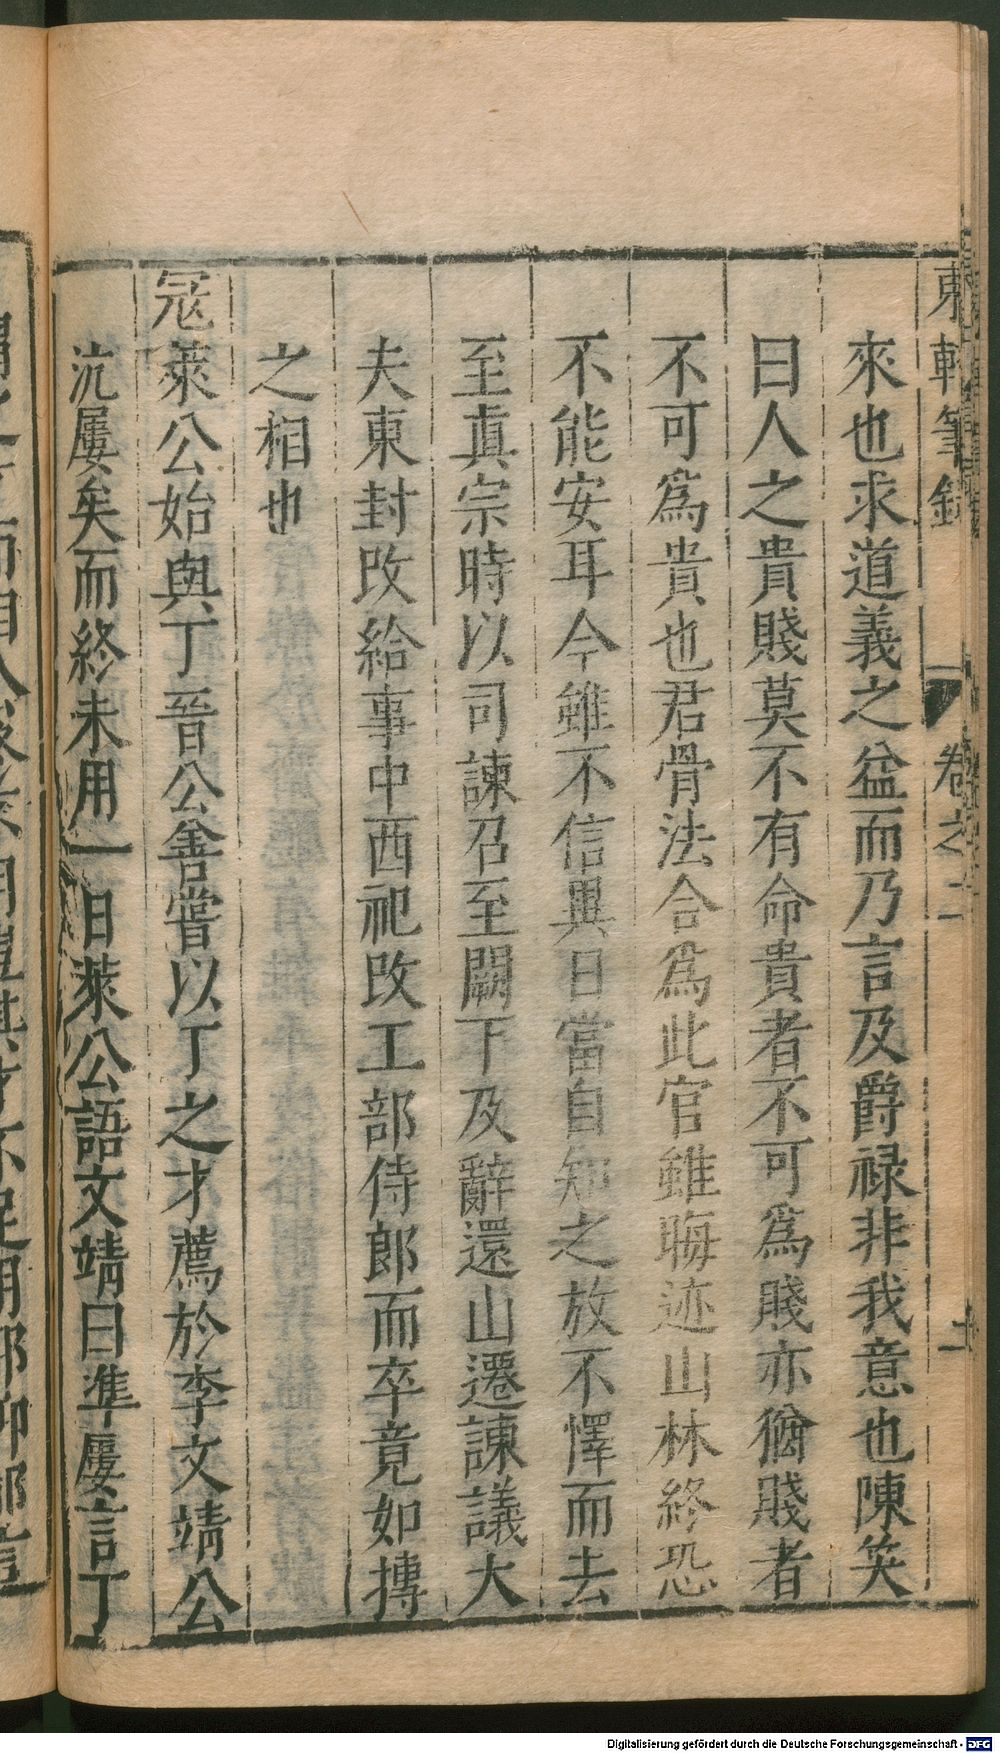 東軒筆錄 卷之二
來也求道義之益而乃言及爵祿非我意也陳笑
曰人之貴賤莫不有命貴者不可為賤亦猶賤者
不可為貴也君骨法合為此官雖晦迹山林終恐
不能安耳今雖不信異日當自知之放不懌而去
至真宗時以司諫召至闕下及辭還山遷諫議大
夫東封改給事中西祀改工部侍郎而卒竟如摶
之相也
冦萊公始與丁晉公善嘗以丁之才薦於李文靖公
沆屢矣而終未用一日萊公語文靖曰準屢言丁
Digitalisierung gefördert durch die Deutsche Forschungsgemeinschaft - DFG